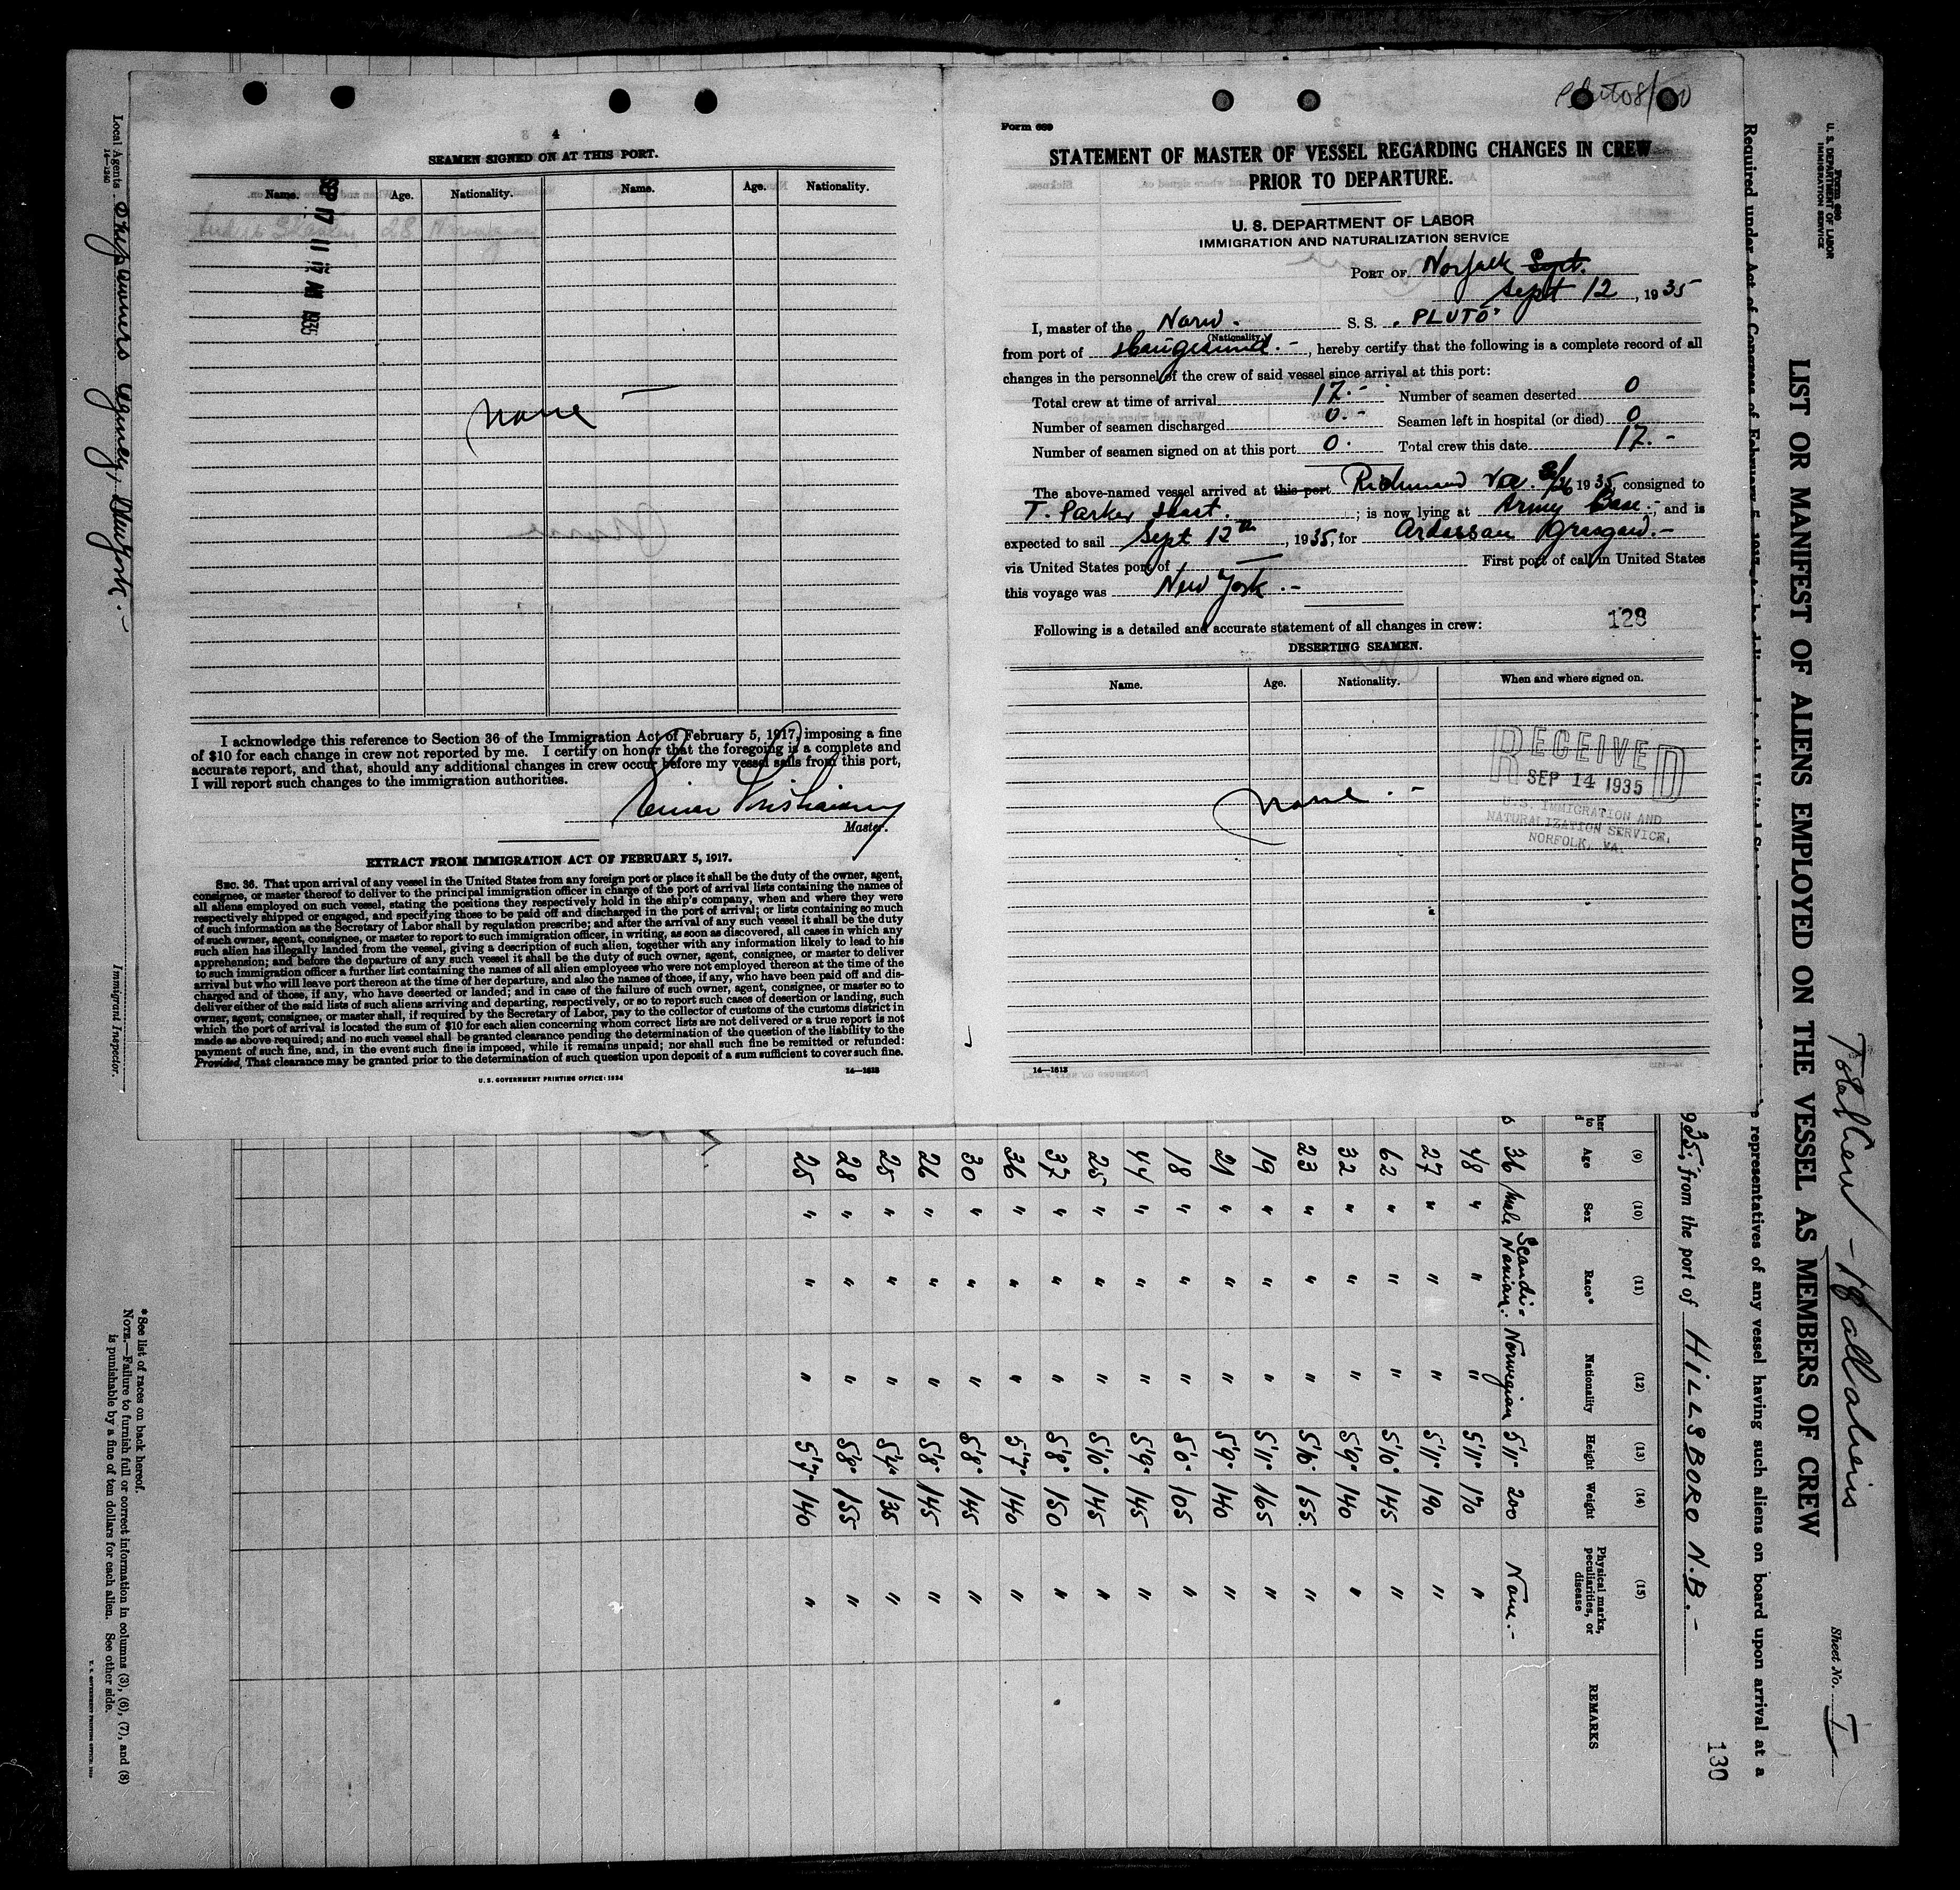 4
SEAMEN SIGNED ON AT THIS PORT.
Name. Age. Nationality. Name. Age. Nationality.
SEP 17 11 17 AM 1935
None
I acknowledge this reference to Section 36 of the Immigration Act of February 5, 1917, imposing a fine
of $10 for each change in crew not reported by me. I certify on honor that the foregoing is a complete and
accurate report, and that, should any additional changes in crew occur before my vessel sails from this port,
I will report such changes to the immigration authorities.
Master.
EXTRACT FROM IMMIGRATION ACT OF FEBRUARY 5, 1917.
SEC. 36. That upon arrival of any vessel in the United States from any foreign port or place it shall be the duty of the owner, agent,
consignee, or master thereof to deliver to the principal immigration officer in charge of the port of arrival lists containing the names of
all aliens employed on such vessel, stating the positions they respectively hold in the ship's company, when and where they were
respectively shipped or engaged, and specifying those to be paid off and discharged in the port of arrival; or lists containing so much
of such information as the Secretary of Labor shall by regulation prescribe; and after the arrival of any such vessel it shall be the duty
of such owner, agent, consignee, or master to report to such immigration officer, in writing, as soon as discovered, all cases in which any
such alien has illegally landed from the vessel, giving a description of such alien, together with any information likely to lead to his
apprehension; and before the departure of any such vessel it shall be the duty of such owner, agent, consignee, or master to deliver
to such immigration officer a further list containing the names of all alien employees who were not employed thereon at the time of the
arrival but who will leave port thereon at the time of her departure, and also the names of those, if any, who have been paid off and dis-
charged and of those, if any, who have deserted or landed; and in case of the failure of such owner, agent, consignee, or master so to
deliver either of the said lists of such aliens arriving and departing, respectively, or so to report such cases of desertion or landing, such
owner, agent, consignee, or master shall, if required by the Secretary of Labor, pay to the collector of customs of the customs district in
which the port of arrival is located the sum of $10 for each alien concerning whom correct lists are not delivered or a true report is not
made as above required; and no such vessel shall be granted clearance pending the determination of the question of the liability to the
payment of such fine, and, in the event such fine is imposed, while it remains unpaid; nor shall such fine be remitted or refunded:
Provided, That clearance may be granted prior to the determination of such question upon deposit of a sum sufficient to cover such fine.
U. S. GOVERNMENT PRINTING OFFICE: 1934 14—1613
Form 689
STATEMENT OF MASTER OF VESSEL REGARDING CHANGES IN CREW
PRIOR TO DEPARTURE.
U. S. DEPARTMENT OF LABOR
IMMIGRATION AND NATURALIZATION SERVICE
PORT OF Norfolk Sept.
Sept 12, 1935
I, master of the Norw. S. S. "PLUTO"
(Nationality)
from port of Haugesund.-, hereby certify that the following is a complete record of all
changes in the personnel of the crew of said vessel since arrival at this port:
Total crew at time of arrival 17.- Number of seamen deserted 0
Number of seamen discharged 0.- Seamen left in hospital (or died) 0
Number of seamen signed on at this port 0. Total crew this date 17.-
The above-named vessel arrived at this port Richmond Va. 1935, consigned to
T. Parker Host.; is now lying at Army Base.-, and is
expected to sail Sept 12th, 1935, for
via United States port of — First port of call in United States
this voyage was New York.-
Following is a detailed and accurate statement of all changes in crew: 128
DESERTING SEAMEN.
Name. Age. Nationality. When and where signed on.
None.-
RECEIVED
SEP 14 1935
U.S. IMMIGRATION AND
NATURALIZATION SERVICE,
NORFOLK, VA.
14—1613
U. S. DEPARTMENT OF LABOR
IMMIGRATION SERVICE
Total Crew - 18 all aliens
Sheet No. I
LIST OR MANIFEST OF ALIENS EMPLOYED ON THE VESSEL AS MEMBERS OF CREW
Required under Act of Congress of February 5, 1917
representatives of any vessel having such aliens on board upon arrival at a
130
935, from the port of HILLSBORO N.B.-
(9) (10) (11) (12) (13) (14) (15)
Age Sex Race* Nationality Height Weight Physical marks, peculiarities, or disease REMARKS
36 Male Scandinavian. Norwegian 5'11" 200 None.-
48 " " " 5'11" 170 "
27 " " " 5'11" 190 "
62 " " " 5'10" 145 "
32 " " " 5'9" 140 "
23 " " " 155 "
19 " " " 5'11" 165 "
21 " " " 5'9" 140 "
18 " " " 5'0" 105 "
44 " " " 5'9" 145 "
25 " " " 5'10" 145 "
37 " " " 5'8" 150 "
36 " " " 5'7" 140 "
30 " " " 5'8" 145 "
26 " " " 5'8" 145 "
25 " " " 5'4" 135 "
28 " " " 5'8" 155 "
25 " " " 5'7" 140 "
* See list of races on back hereof.
NOTE.—Failure to furnish full or correct information in columns (3), (6), (7), and (8)
is punishable by a fine of ten dollars for each alien. See other side.
Local Agents Shipowners Agency, New York.-
14—1240
Immigrant Inspector.